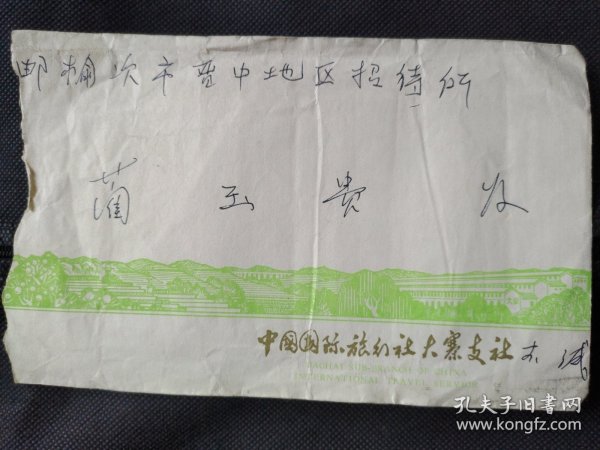 邮榆次市晋中地区招待所
蔺玉贵 收
中国国际旅行社大寨支社 木缄
TACHAI SUB-BRANCH OF CHINA
INTERNATIONAL TRAVEL SERVICE
孔夫子旧书网
www.kongfz.com